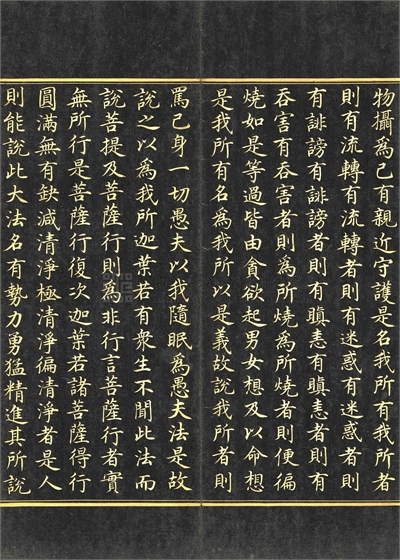 物攝為己有親近守護是名我所有我所者
則有流轉有流轉者則有迷惑有迷惑者則
有誹謗有誹謗者則有瞋恚有瞋恚者則有
吞害有吞害者則為所燒為所燒者則便徧
燒如是等過皆由貪欲起男女想及以命想
是我所有名為我所以是義故說我所者則
罵己身一切愚夫以我隨眠為愚夫法是故
說之以為我所迦葉若有眾生不聞此法而
說菩提及菩薩行則為非行言菩薩行者實
無所行是菩薩行復次迦葉若諸菩薩得行
圓滿無有缺減清淨極清淨徧清淨者是人
則能說此大法名有勢力勇猛精進其所說